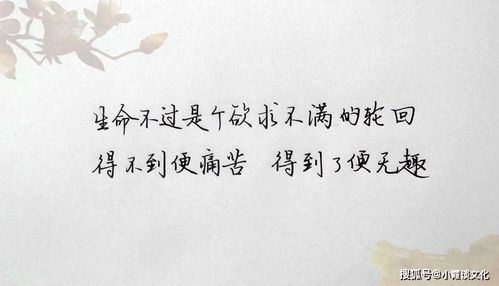 生命不过是个欲求不满的轮回
得不到便痛苦 得到了便无趣
搜狐号@小霞谈文化